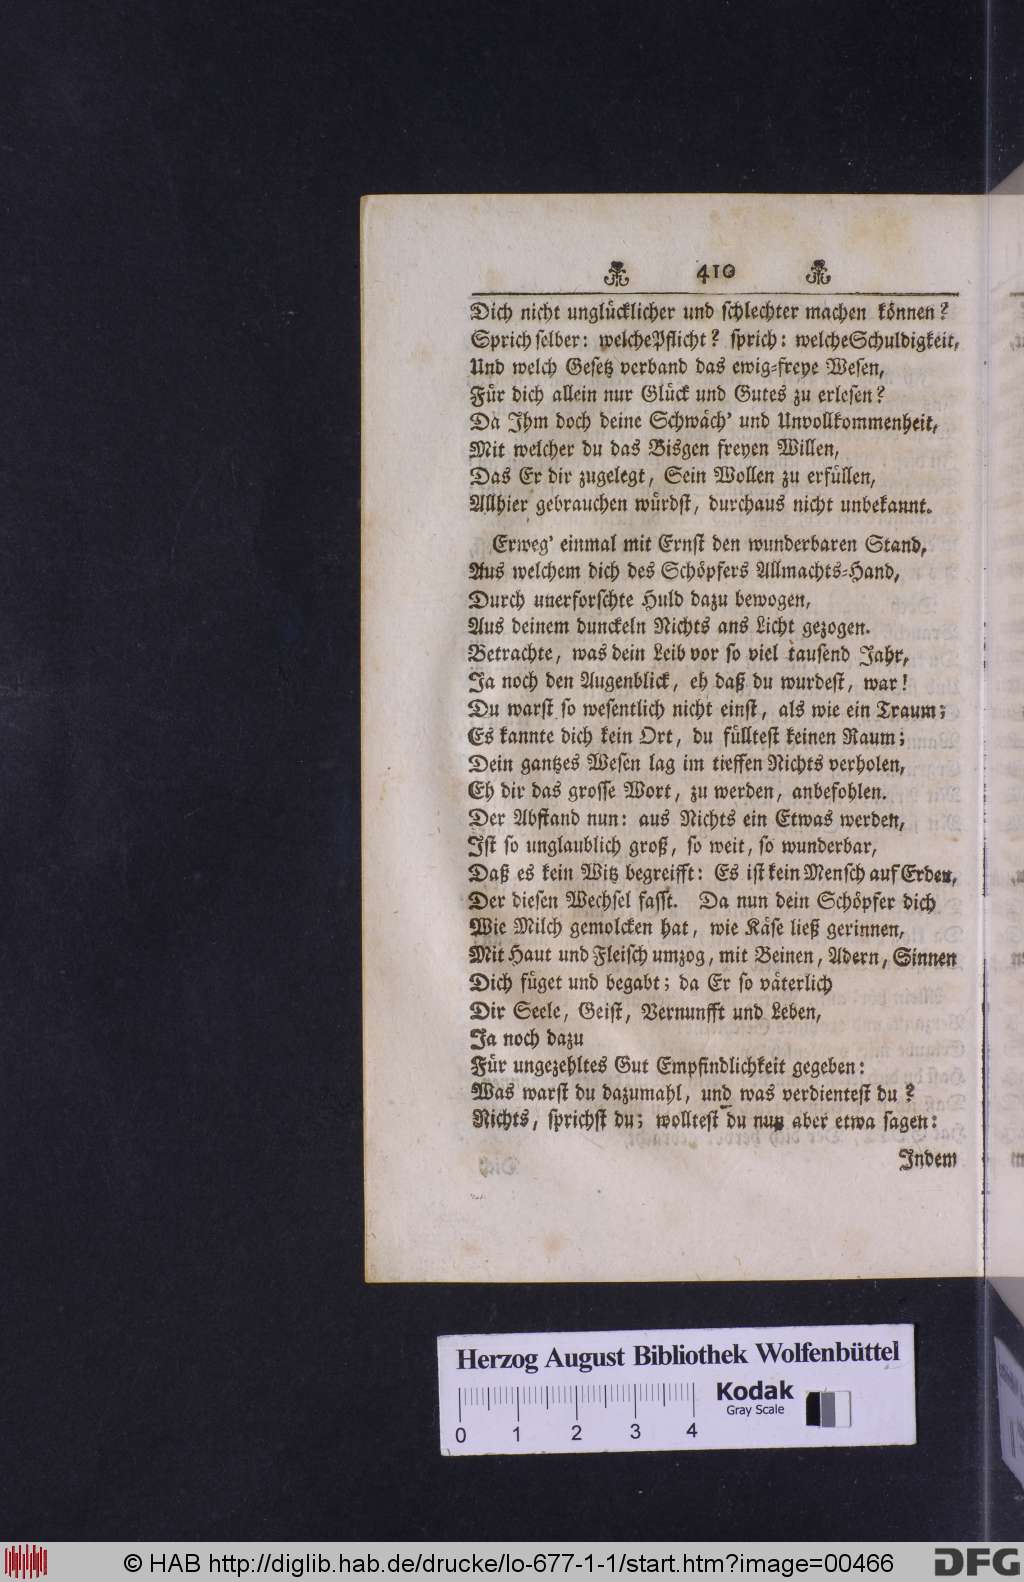 410
Dich nicht unglücklicher und schlechter machen können?
Sprich selber: welche Pflicht? sprich: welche Schuldigkeit,
Und welch Gesetz verband das ewig-freye Wesen,
Für dich allein nur Glück und Gutes zu erlesen?
Da Ihm doch deine Schwäch' und Unvollkommenheit,
Mit welcher du das Bisgen freyen Willen,
Das Er dir zugelegt, Sein Wollen zu erfüllen,
Allhier gebrauchen würdst, durchaus nicht unbekannt.
Erweg' einmal mit Ernst den wunderbaren Stand,
Aus welchem dich des Schöpfers Allmachts-Hand,
Durch unerforschte Huld dazu bewogen,
Aus deinem dunckeln Nichts ans Licht gezogen.
Betrachte, was dein Leib vor so viel tausend Jahr,
Ja noch den Augenblick, eh daß du wurdest, war!
Du warst so wesentlich nicht einst, als wie ein Traum;
Es kannte dich kein Ort, du fülltest keinen Raum;
Dein gantzes Wesen lag im tieffen Nichts verholen,
Eh dir das grosse Wort, zu werden, anbefohlen.
Der Abstand nun: aus Nichts ein Etwas werden,
Ist so unglaublich groß, so weit, so wunderbar,
Daß es kein Witz begreifft: Es ist kein Mensch auf Erden,
Der diesen Wechsel fasst. Da nun dein Schöpfer dich
Wie Milch gemolcken hat, wie Käse ließ gerinnen,
Mit Haut und Fleisch umzog, mit Beinen, Adern, Sinnen
Dich füget und begabt; da Er so väterlich
Dir Seele, Geist, Vernunfft und Leben,
Ja noch dazu
Für ungezehltes Gut Empfindlichkeit gegeben:
Was warst du dazumahl, und was verdientest du?
Nichts, sprichst du; wolltest du nun aber etwa sagen:
Indem
Herzog August Bibliothek Wolfenbüttel
Kodak
Gray Scale
0 1 2 3 4
© HAB http://diglib.hab.de/drucke/lo-677-1-1/start.htm?image=00466
DFG